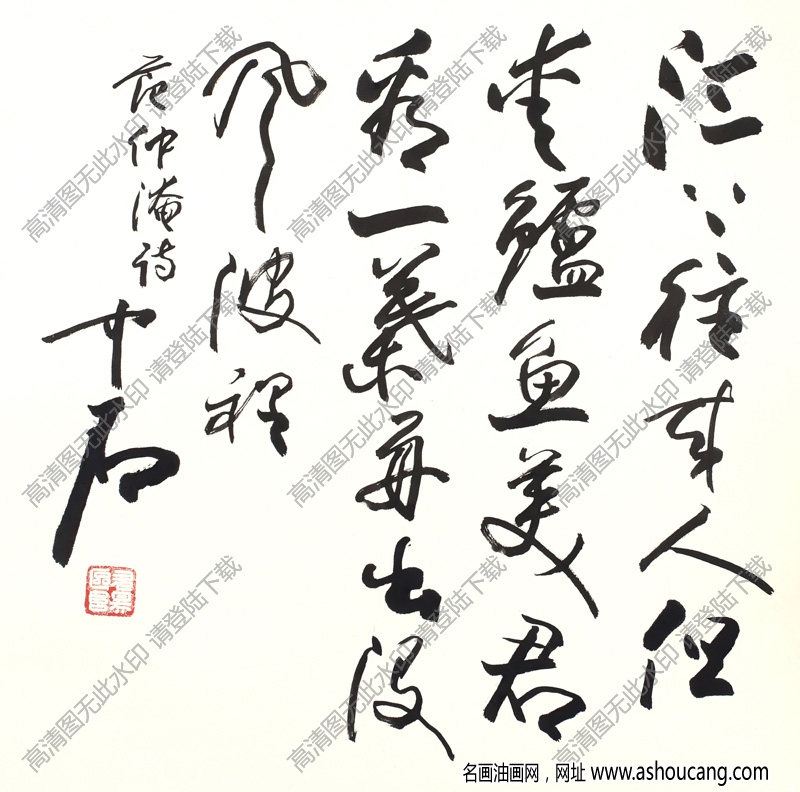 江上往来人但
爱鱸鱼美君
看一葉舟出没
风波裡
范仲淹诗 中石
高清图无此水印 请登陆下载
名画油画网，网址 www.ashoucang.com